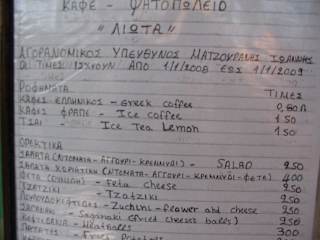 ΚΑΦΕ - ΨΗΤΟΠΩΛΕΙΟ
"ΛΙΩΤΑ"
ΑΓΟΡΑΝΟΜΙΚΟΣ ΥΠΕΥΘΥΝΟΣ ΜΑΤΖΟΥΡΑΝΗΣ ΙΩΑΝΝΗΣ
ΟΙ ΤΙΜΕΣ ΙΣΧΥΟΥΝ ΑΠΟ 1/1/2008 ΕΩΣ 1/1/2009
ΡΟΦΗΜΑΤΑ ΤΙΜΕΣ
ΚΑΦΕΣ ΕΛΛΗΝΙΚΟΣ - Greek coffee 0,80Λ
ΚΑΦΕΣ ΦΡΑΠΕ - Ice coffee 1.50
ΤΣΑΙ - Ice Tea Lemon 1.50
ΟΡΕΚΤΙΚΑ
ΣΑΛΑΤΑ (ΝΤΟΜΑΤΑ - ΑΓΓΟΥΡΙ - ΚΡΕΜΜΥΔΙ) - SALAD 250
ΣΑΛΑΤΑ ΧΩΡΙΑΤΙΚΗ (ΝΤΟΜΑΤΑ, ΑΓΓΟΥΡΙ, ΚΡΕΜΜΥΔΙ, ΦΕΤΑ) 400
ΦΕΤΑ - Feta cheese 250
ΤΖΑΤΖΙΚΙ - Tzatziki 250
- Zuchini - flawer and cheese 250
- Saganaki (fried cheese balls) 250
- Meatballs 300